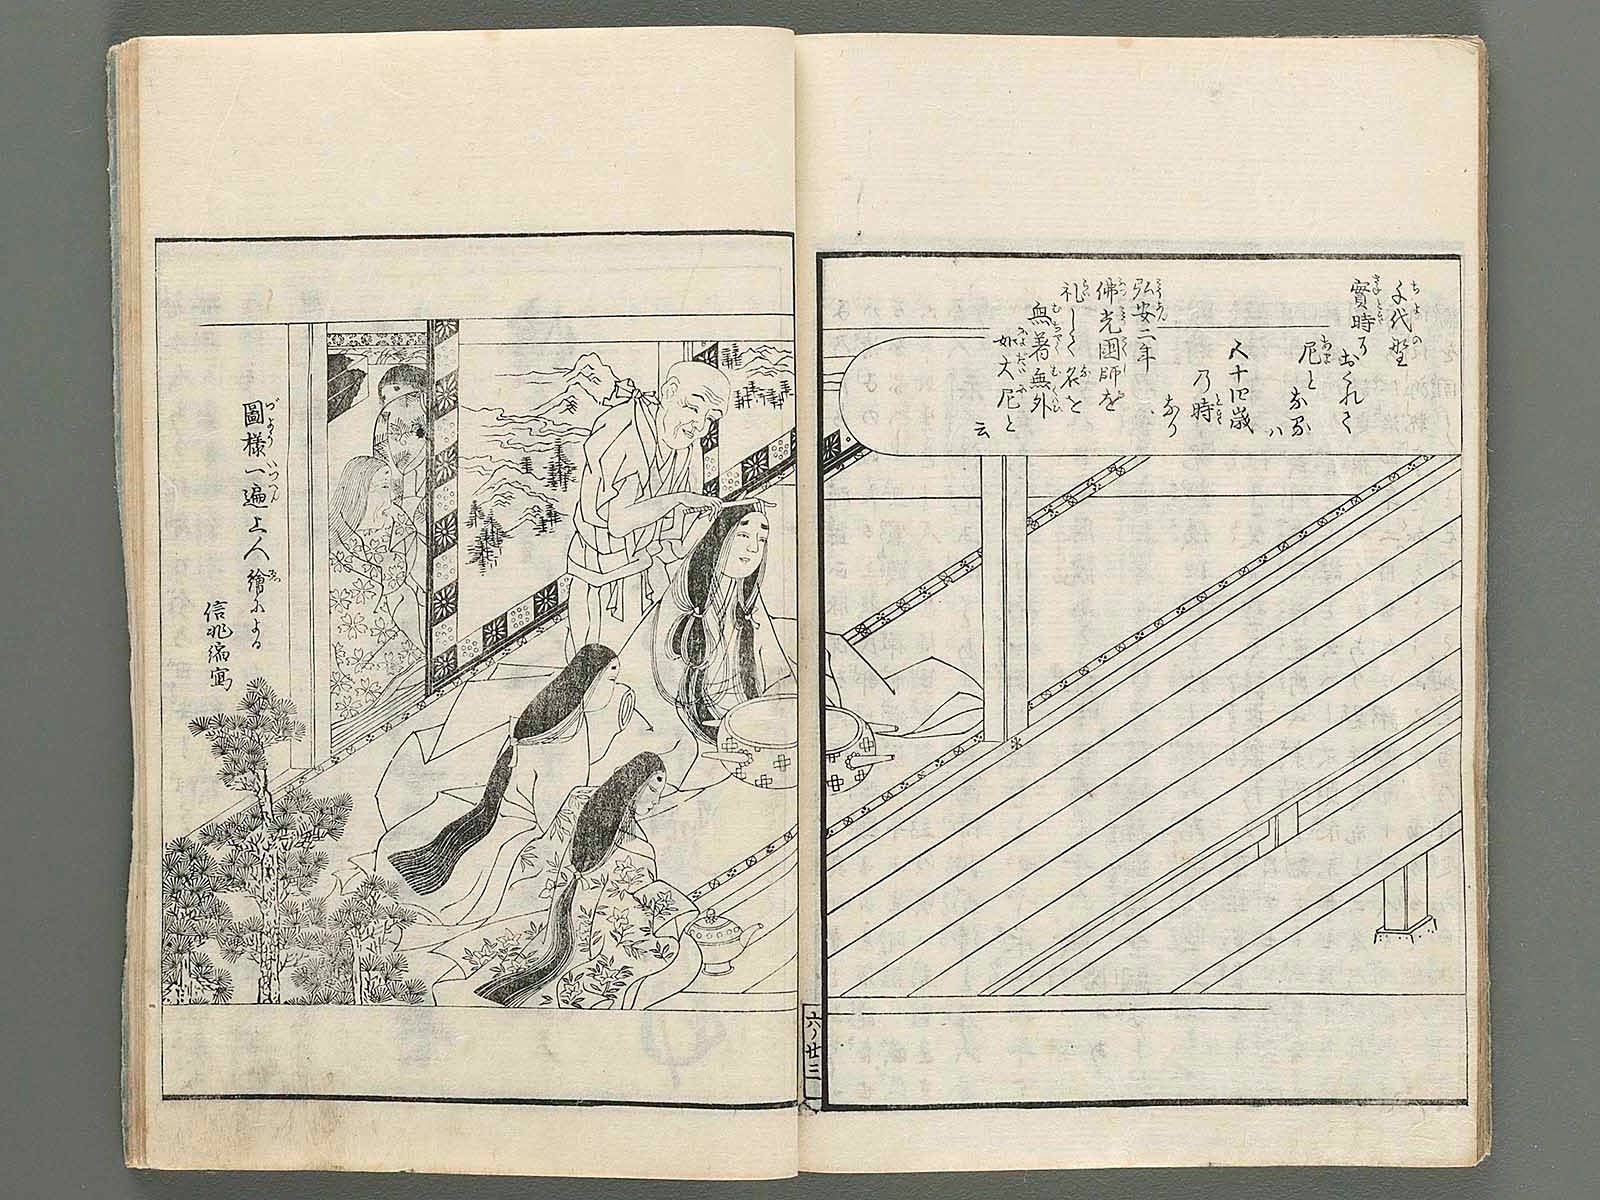 千代野
實時におくれて
尼となるハ
五十四歳
乃時なり
弘安二年
佛光國師を
礼して名を
無著無外
如大尼と
云
圖様一遍上人繪による
信兆縮寫
六ノ廿三